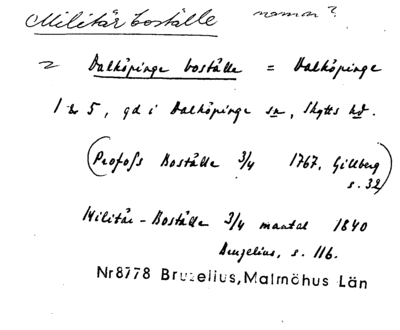 Militär boställe namn?
~ Dalköpinge boställe = Dalköpinge
1 & 5, gd i Dalköpinge sn, Skytts hd.
(Profoss Boställe 3/4 1767, Gillberg
s. 32)
Militär-Boställe 3/4 mantal 1840
Bruzelius, s. 116.
Nr8778 Bruzelius, Malmöhus Län